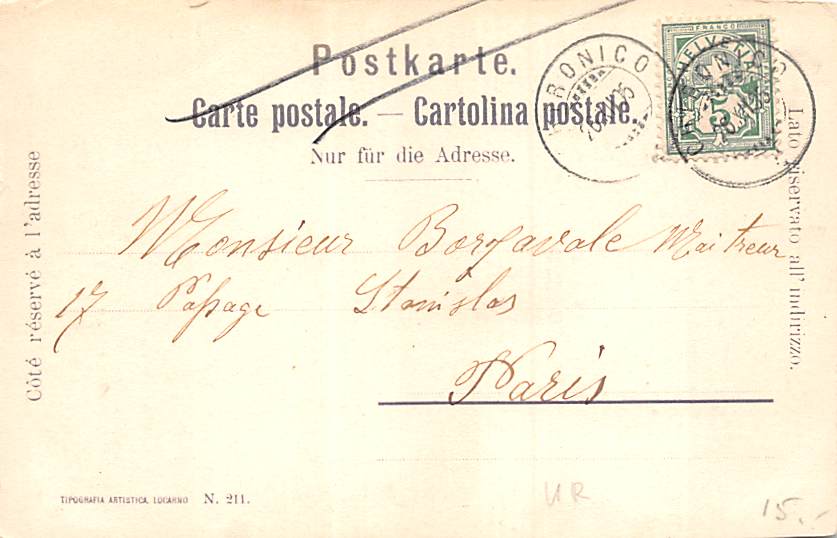 Postkarte.
Carte postale. — Cartolina postale.
Nur für die Adresse.
Côté réservé à l'adresse
Lato riservato all' indirizzo.
FRANCO
HELVETIA
5
Monsieur Borgavale
17 Passage Stanislas
Paris
TIPOGRAFIA ARTISTICA, LOCARNO N. 211.
UR
15.-